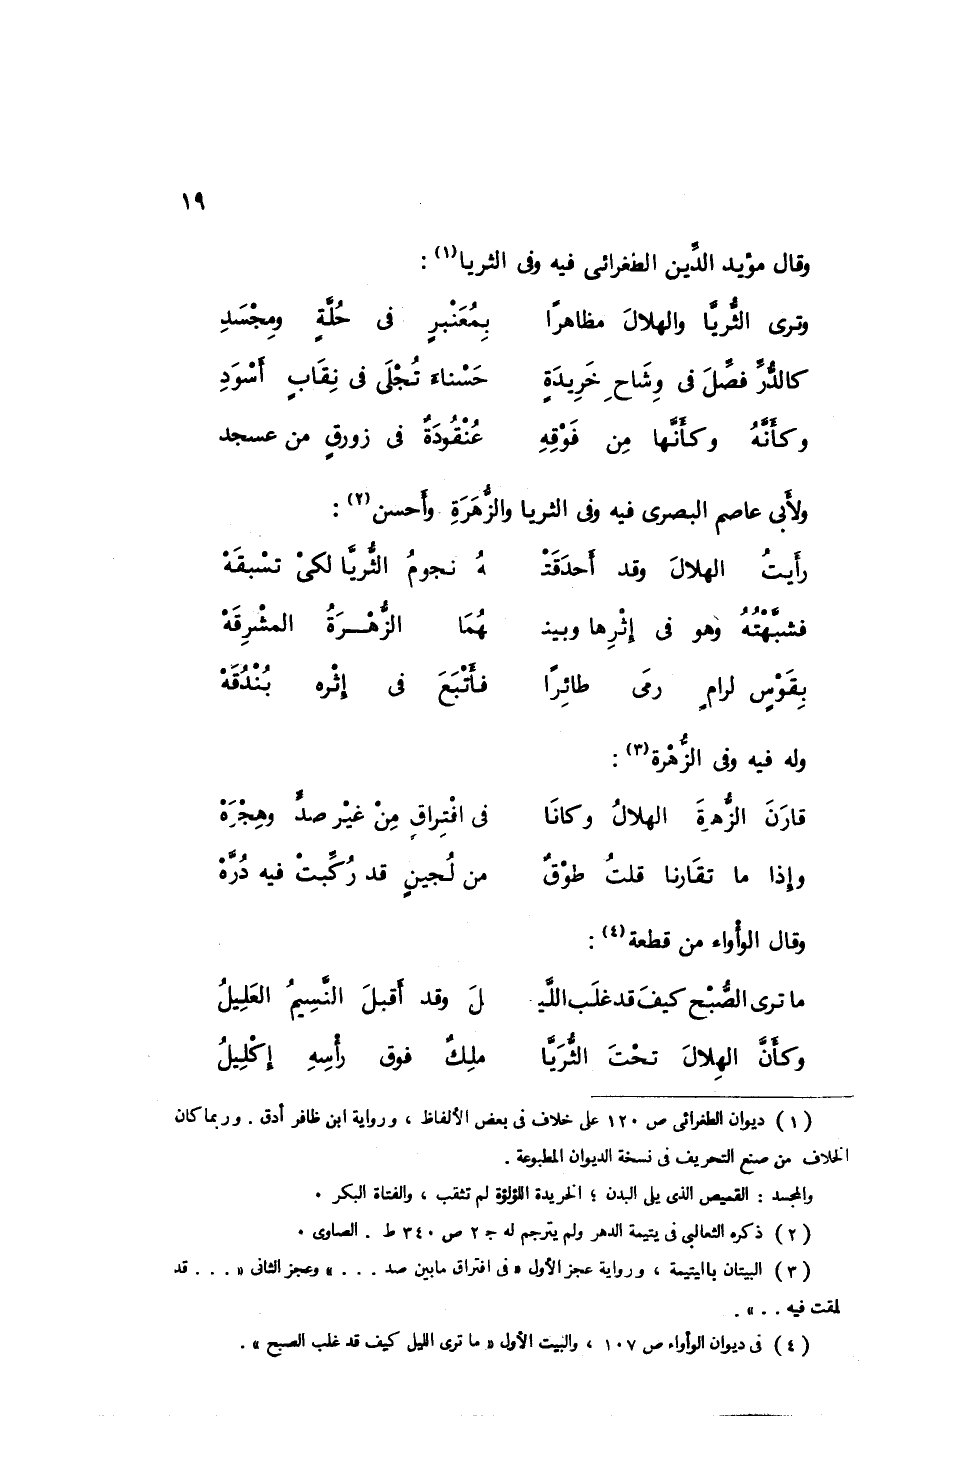 ١٩
وقال مؤيد الدَّين الطغرائى فيه وفى الثريا(١) :
وترى الثُّريَّا والهلالَ مظاهرًا بِمُعَنْبرٍ فى حُلَّةٍ ومِجْسَدِ
كالدُّرِّ فصِّلَ فى وِشَاحِ خَرِيدَةٍ حَسْناءَ تُجْلَى فى نِقَابٍ أَسْوَدِ
وكأَنَّهُ وكأَنَّها مِن فَوْقِهِ عُنْقُودَةٌ فى زورقٍ من عسجد
ولأَبى عاصم البصرى فيه وفى الثريا والزُّهَرَةِ وأَحسن(٢) :
رأَيتُ الهلالَ وقد أَحدَقَتْـ ـهُ نجومُ الثُّريَّا لكىْ تسْبقَهْ
فشبَّهْتُهُ وَهو فى إثْرِها وبينـ ـهُمَا الزُّهْـــرَةُ المشْرِقَهْ
بِقَوْسٍ لرامٍ رمَى طائِرًا فأَتْبَعَ فى إثْره بُنْدُقَهْ
وله فيه وفى الزُّهْرة(٣) :
قارَنَ الزُّهرةَ الهلالُ وكانَا فى افْتِراقٍ مِنْ غيْر صدٍّ وهِجْرَهْ
وإذا ما تقَارنا قلتُ طوْقٌ من لُجينٍ قد رُكِّبتْ فيه دُرَّهْ
وقال الوأْواء من قطعة(٤) :
ما ترى الصُّبْح كيفَ قد غلَب اللَّيـ ـلَ وقد أَقبلَ النَّسِيمُ العَلِيلُ
وكأَنَّ الهِلالَ تحْتَ الثُّرَيَّا ملِكٌ فوق رأْسِهِ إكْلِيلُ
(١) ديوان الطغرائى ص ١٢٠ على خلاف فى بعض الألفاظ ، ورواية ابن ظافر أدق . وربما كان
الخلاف من صنع التحريف فى نسخة الديوان المطبوعة .
والمجسد : القميص الذى يلى البدن ؛ الخريدة اللؤلؤة لم تثقب ، والفتاة البكر .
(٢) ذكره الثعالبى فى يتيمة الدهر ولم يترجم له ج ٢ ص ٣٤٠ ط . الصاوى .
(٣) البيتان باليتيمة ، ورواية عجز الأول « فى افتراق مابين صد . . . » وعجز الثانى « . . . قد
لمقت فيه . . » .
(٤) فى ديوان الوأواء ص ١٠٧ ، والبيت الأول « ما ترى الليل كيف قد غلب الصبح » .